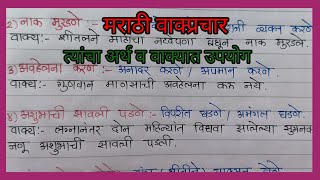 2) नाक मुरडणे :- व्यक्त करणे
मराठी वाक्प्रचार
वाक्य:- शीतलने बघून नाक मुरडले.
त्यांचा अर्थ व वाक्यात उपयोग
3) अवहेलना करणे :- अनादर करणे / अपमान करणे.
वाक्य:- गुणवान माणसाची अवहेलना करू नये.
4) अशुभाची सावली पडणे :- विपरीत घडणे / अमंगल घडणे.
वाक्य:- लग्नानंतर दोन महिन्यात विधवा झालेल्या सुमनवर
जणू अशुभाची सावली पडली.